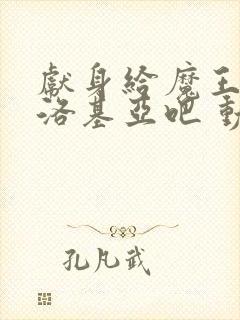 獻身給魔王
洛基亞吧 動
孔凡武